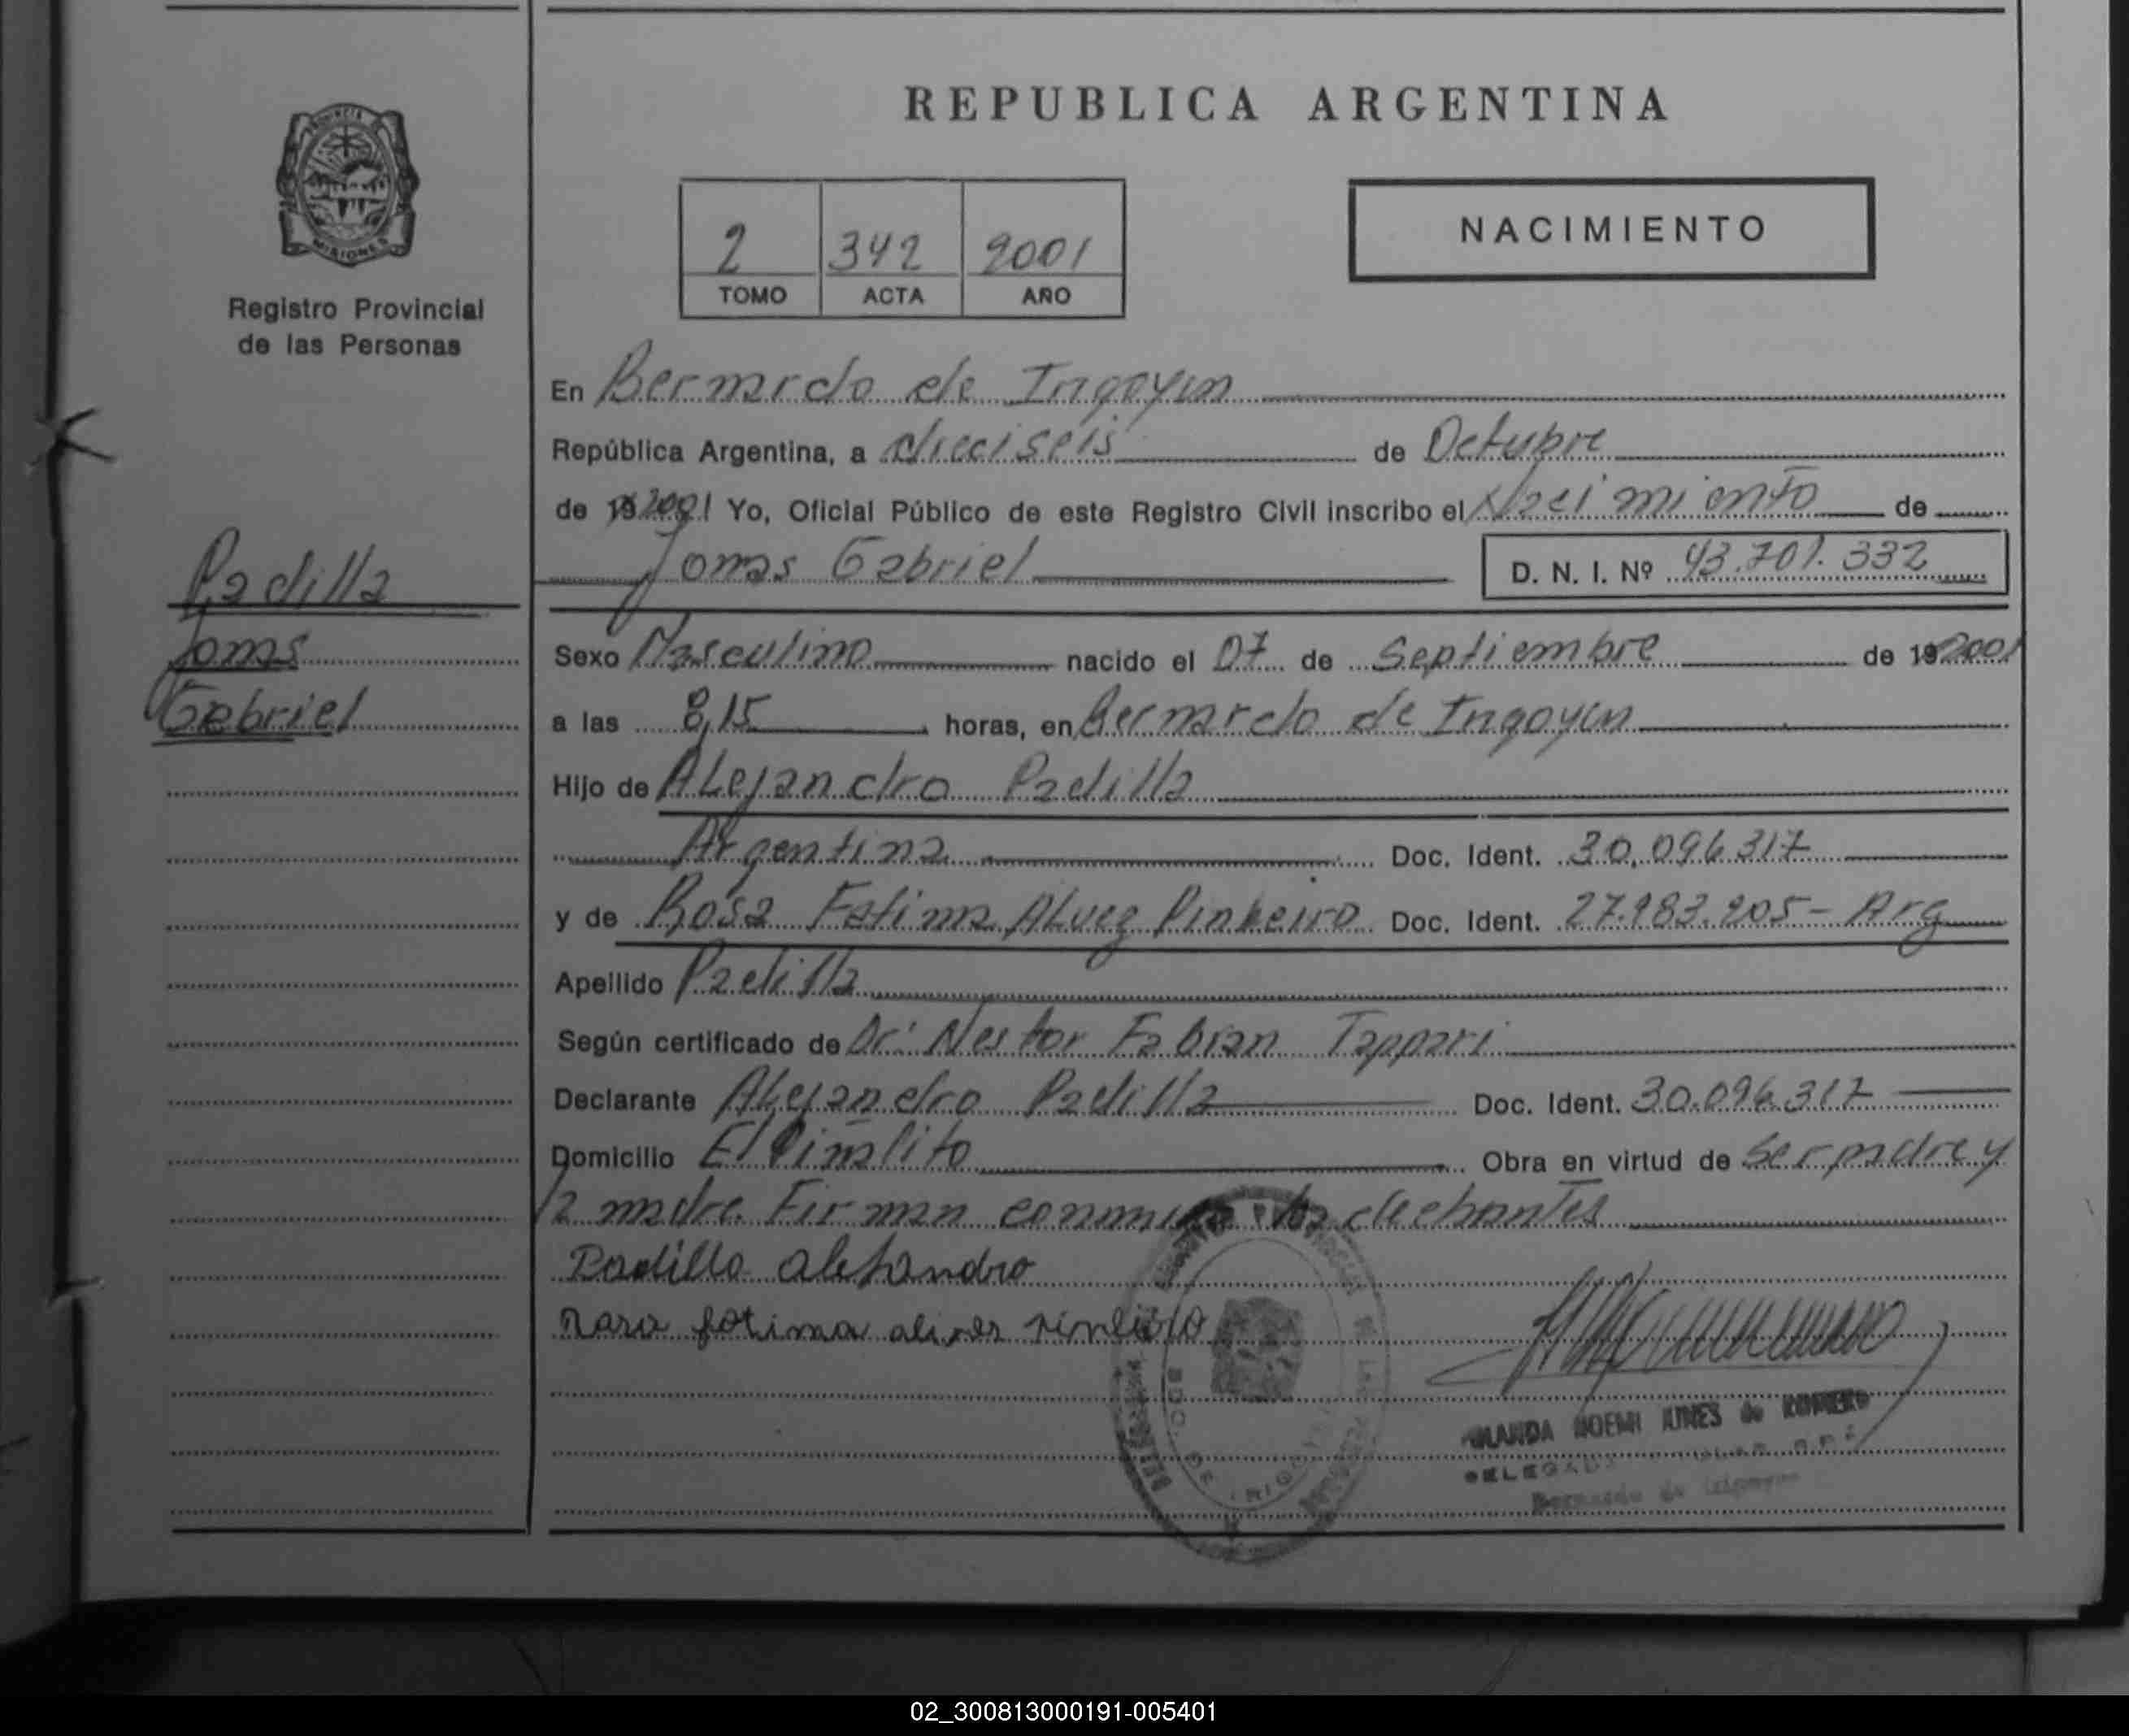 REPUBLICA ARGENTINA
PROVINCIA DE
MISIONES
Registro Provincial
de las Personas
2 342 2001
TOMO ACTA AÑO
NACIMIENTO
En Bernardo de Irigoyen
República Argentina, a dieciseis de Octubre
de 19 2001 Yo, Oficial Público de este Registro Civil inscribo el Nacimiento de
Jonas Gabriel D. N. I. Nº 43.701.332
Padilla
Jonas
Gabriel
Sexo Masculino nacido el 07 de Septiembre de 19 2001
a las 8,15 horas, en Bernardo de Irigoyen
Hijo de Alejandro Padilla
Argentina Doc. Ident. 30.096.317
y de Rosa Fatima Alvez Pinheiro Doc. Ident. 27.983.205 - Arg
Apellido Padilla
Según certificado de Dr: Nestor Fabian Tappari
Declarante Alejandro Padilla Doc. Ident. 30.096.317
Domicilio El Piñalito Obra en virtud de ser padre y
la madre Firman
Padilla alejandro
fatima
BDO. DE IRIGOYEN
NOEMI de ROMERO
Bernardo de Irigoyen
02_300813000191-005401